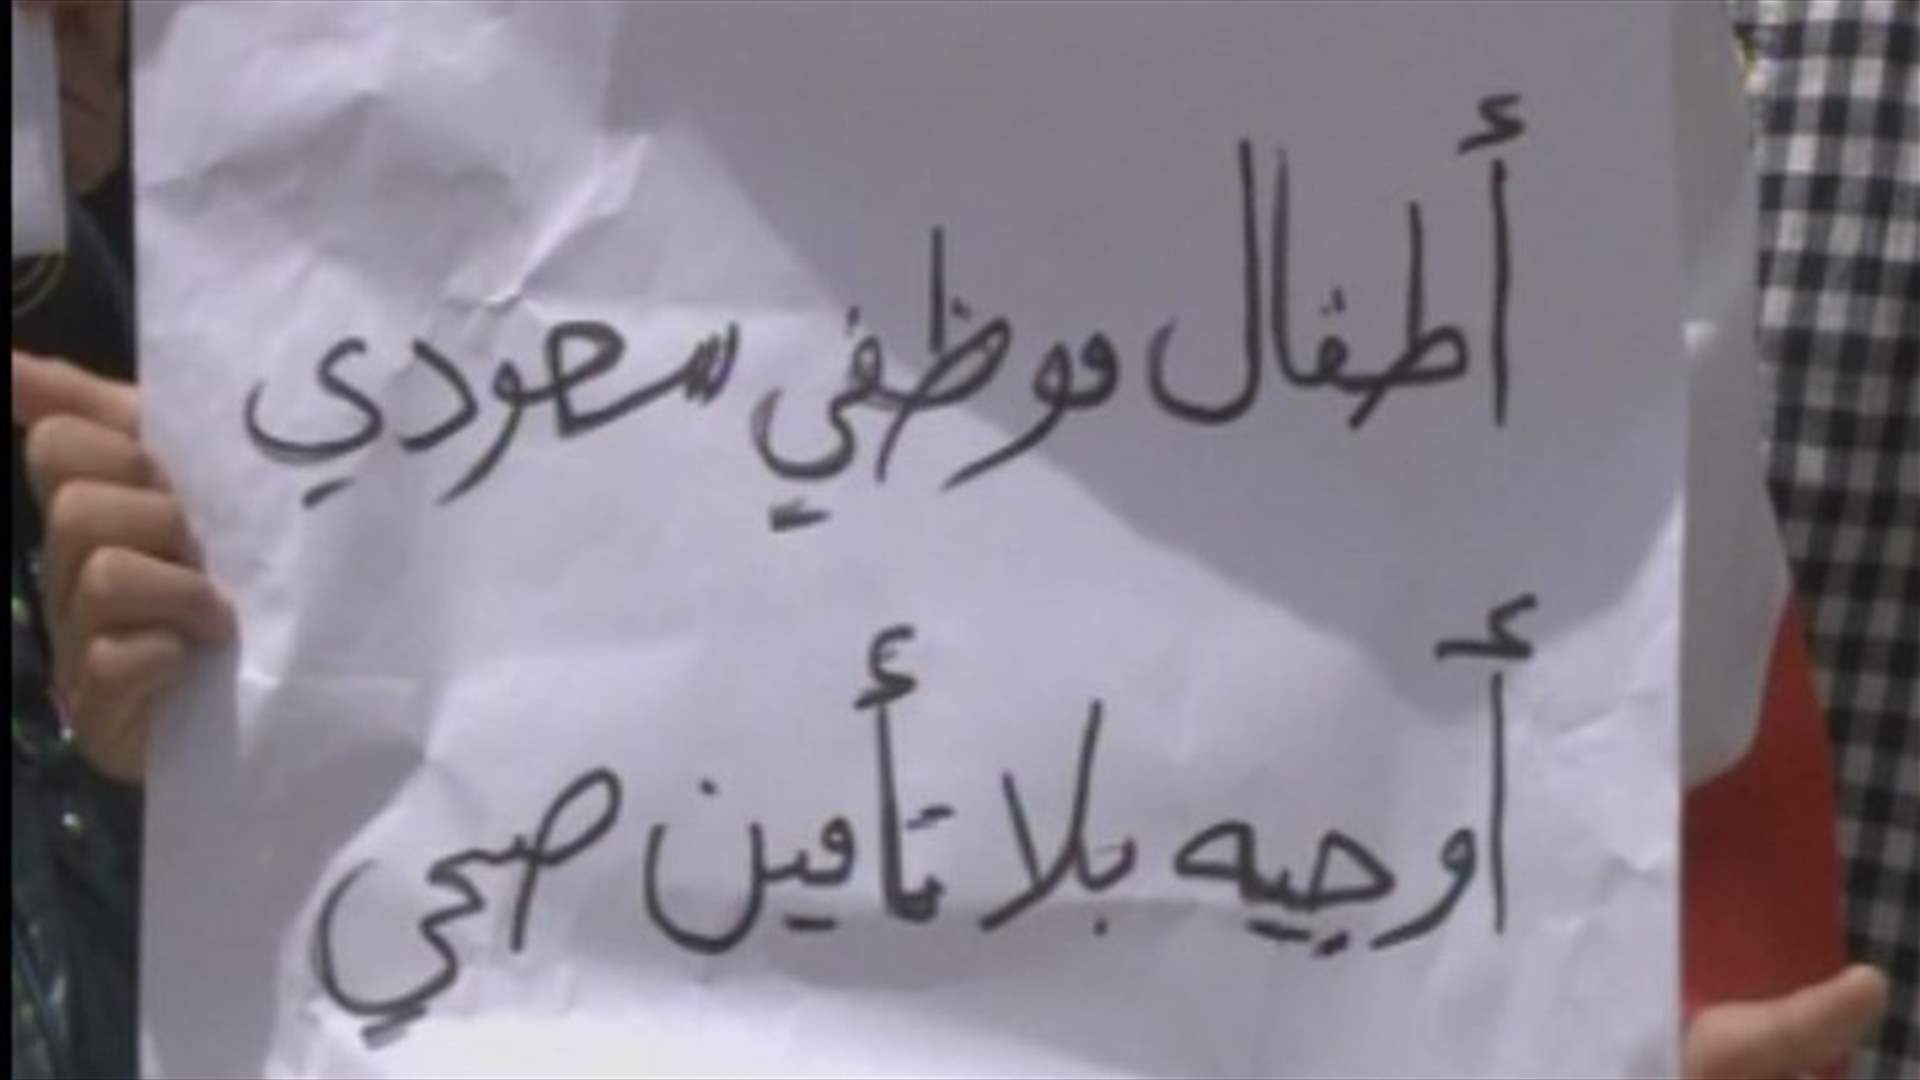 أطفال موظفي سعودي
أوجيه بلا تأمين صحي